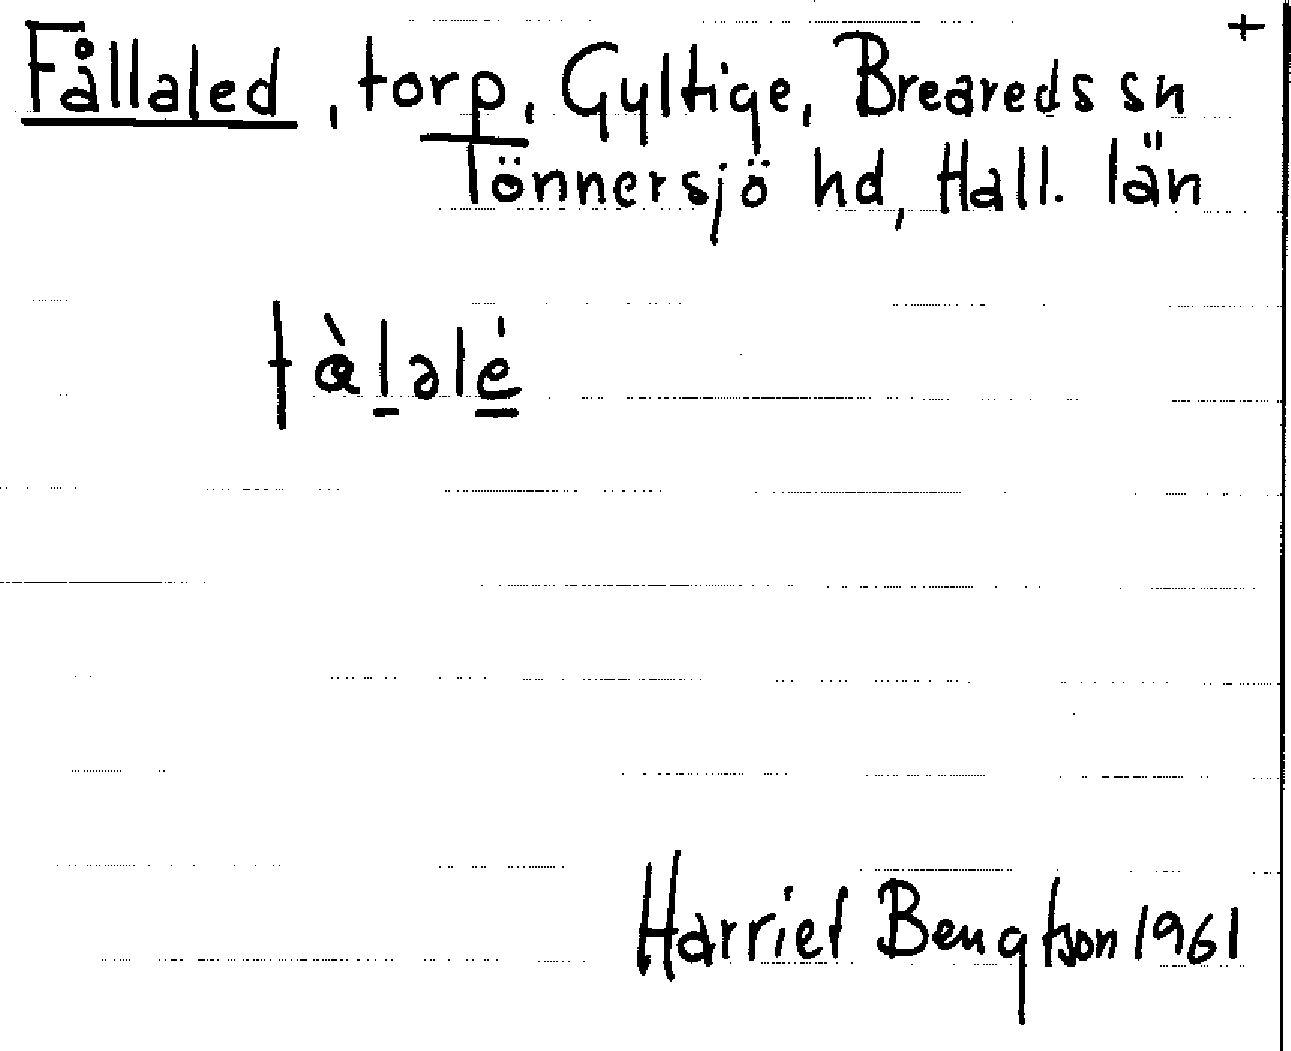 +
Fållaled, torp, Gyltige, Breareds sn
Tönnersjö hd, Hall. län
fàlalé
Harriet Bengtson 1961